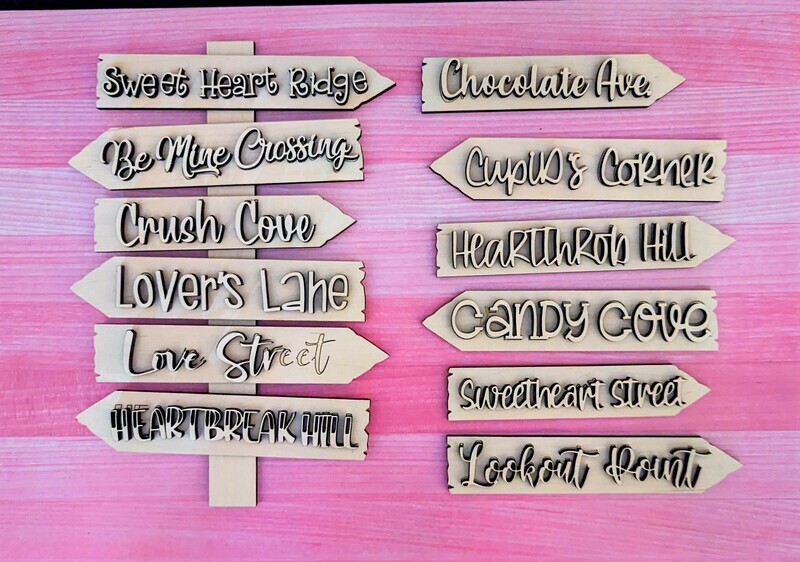 Sweet Heart Ridge
Be Mine Crossing
Crush Cove
Lover's Lane
Love Street
HEARTBREAK HILL
Chocolate Ave.
Cupid's Corner
Heartthrob Hill
Candy Cove
Sweetheart Street
Lookout Point